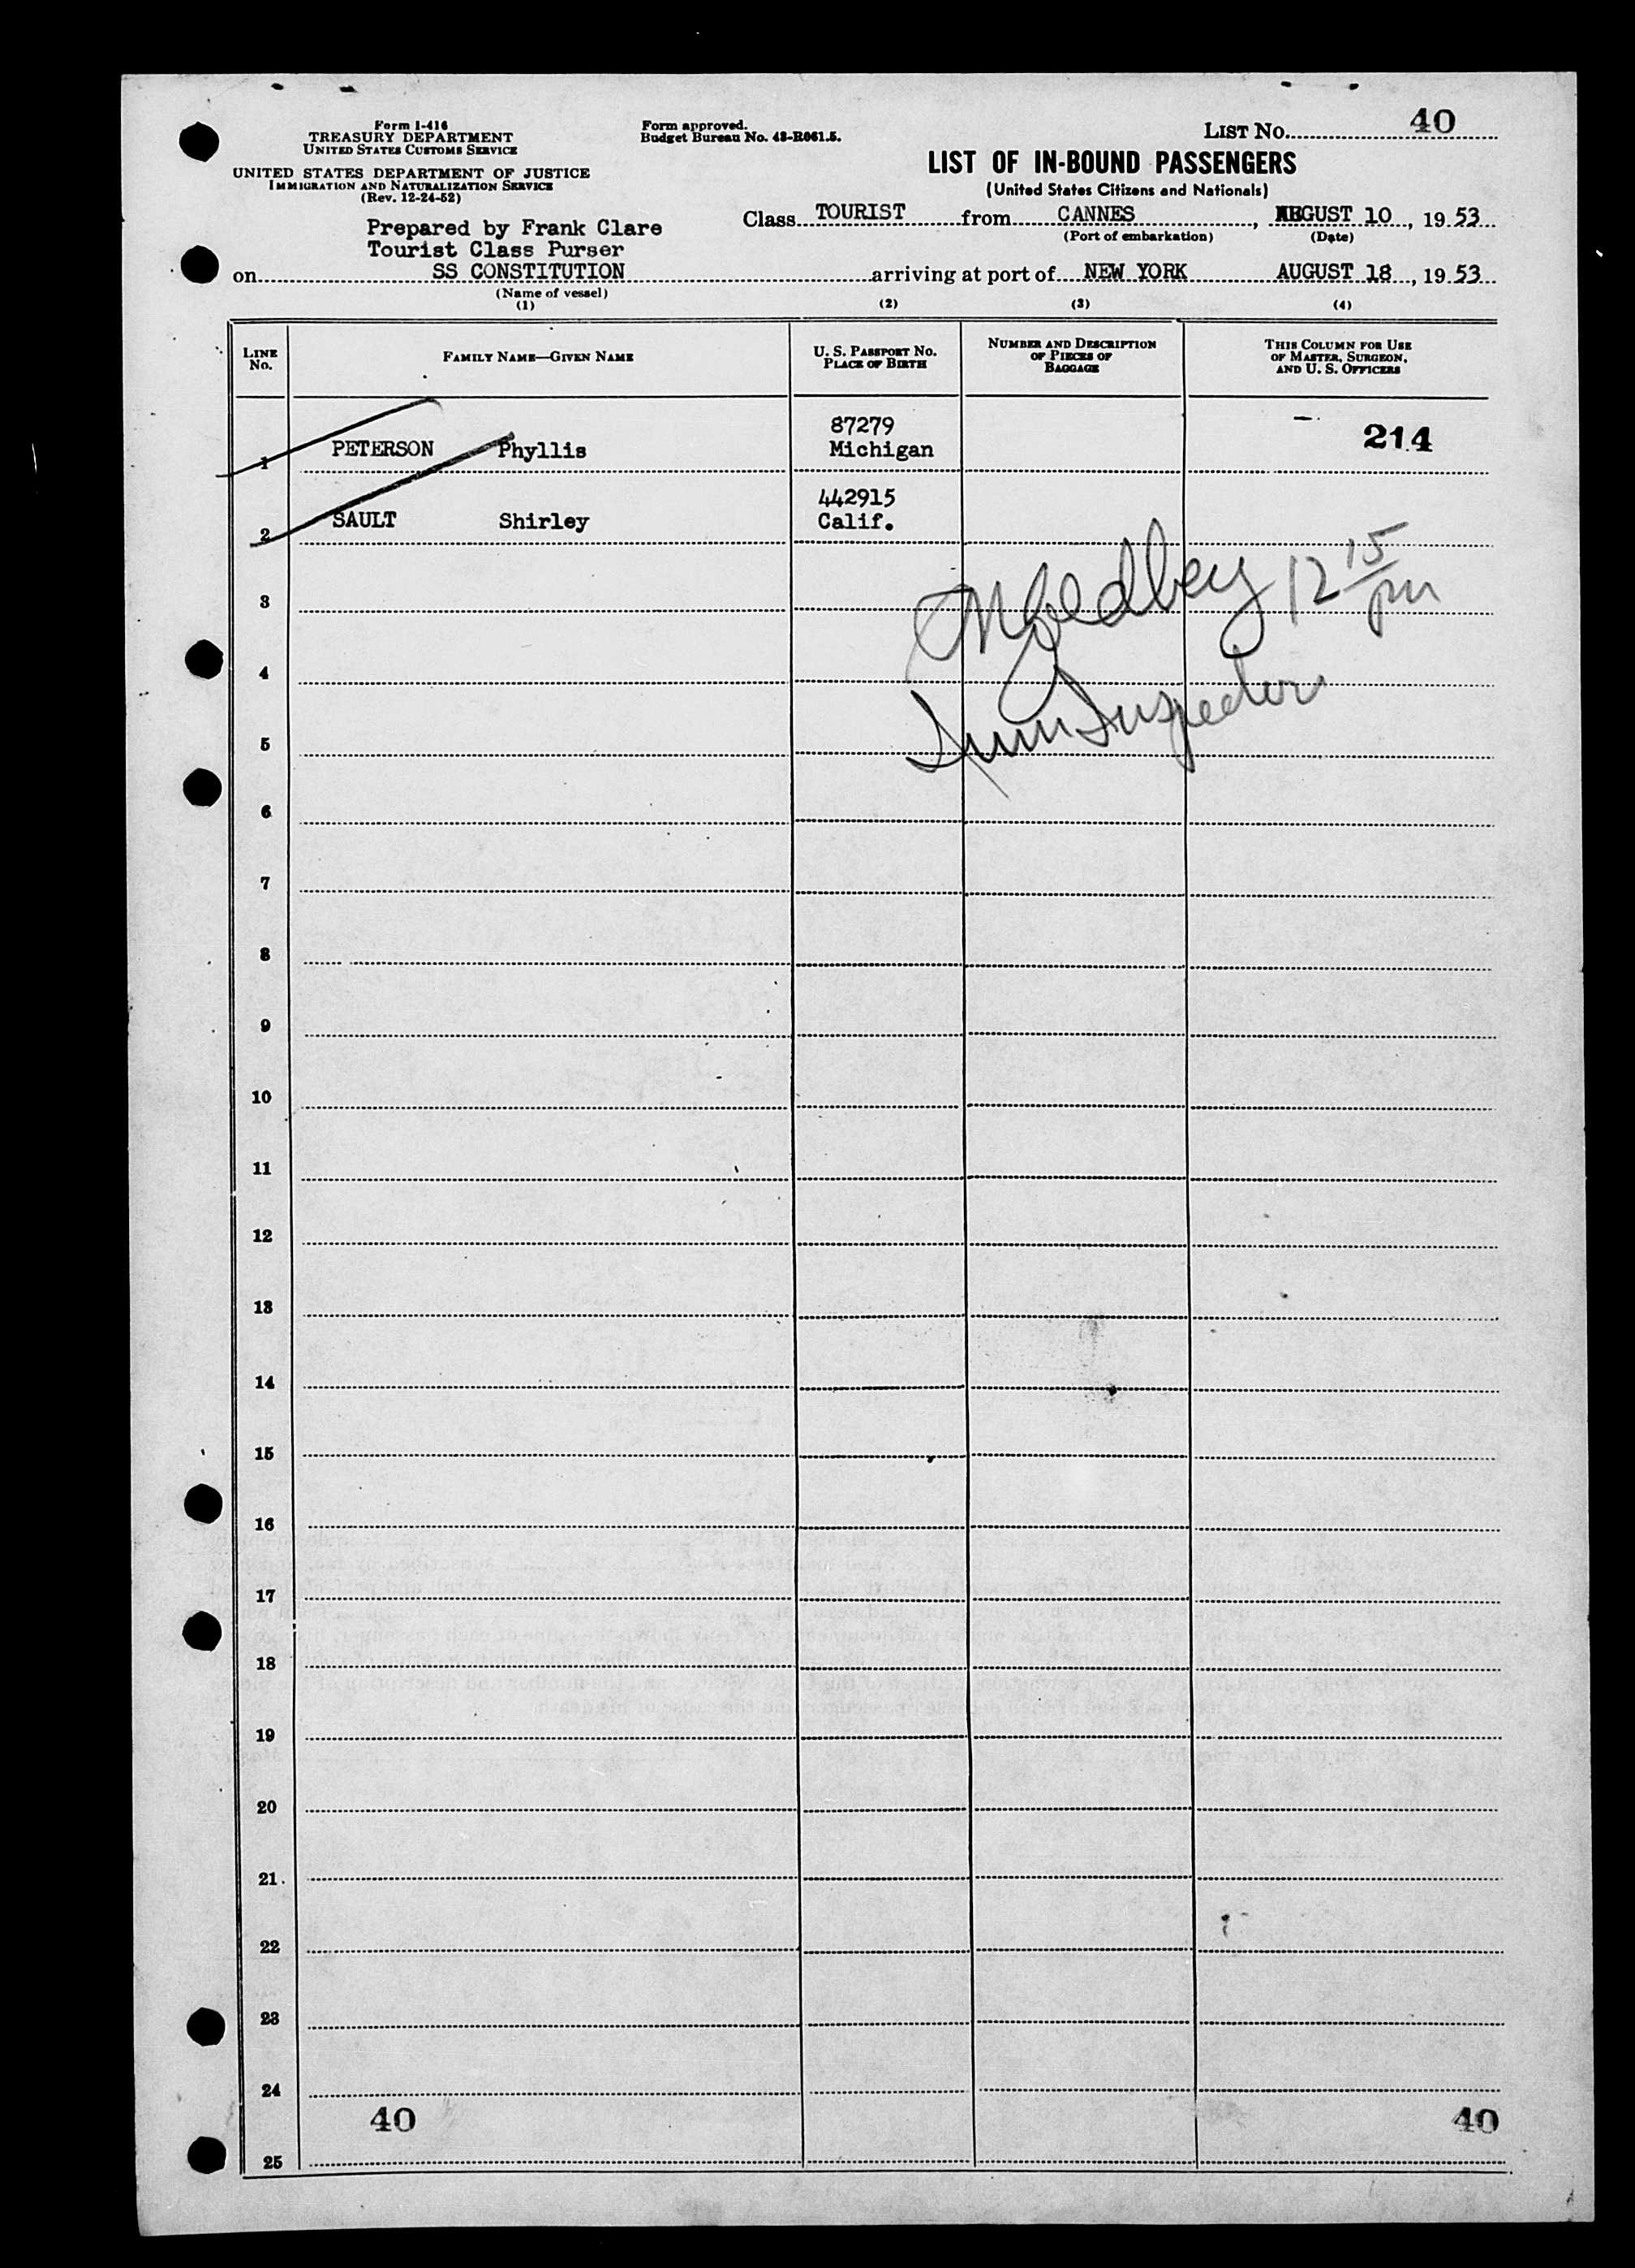 Form I-416
TREASURY DEPARTMENT
UNITED STATES CUSTOMS SERVICE
UNITED STATES DEPARTMENT OF JUSTICE
IMMIGRATION AND NATURALIZATION SERVICE
(Rev. 12-24-52)
Form approved.
Budget Bureau No. 43-R061.5.
LIST No. 40
LIST OF IN-BOUND PASSENGERS
(United States Citizens and Nationals)
Class TOURIST from CANNES, AUGUST 10, 1953
(Port of embarkation) (Date)
Prepared by Frank Clare
Tourist Class Purser
on SS CONSTITUTION arriving at port of NEW YORK AUGUST 18, 1953
(Name of vessel)
(1) (2) (3) (4)
LINE No. FAMILY NAME—GIVEN NAME U. S. PASSPORT No. PLACE OF BIRTH NUMBER AND DESCRIPTION OF PIECES OF BAGGAGE THIS COLUMN FOR USE OF MASTER, SURGEON, AND U. S. OFFICERS
87279
1 PETERSON Phyllis Michigan 214
442915
2 SAULT Shirley Calif.
12 15 pm
3
4
Imm Inspector
5
6
7
8
9
10
11
12
13
14
15
16
17
18
19
20
21
22
23
24
40 40
25